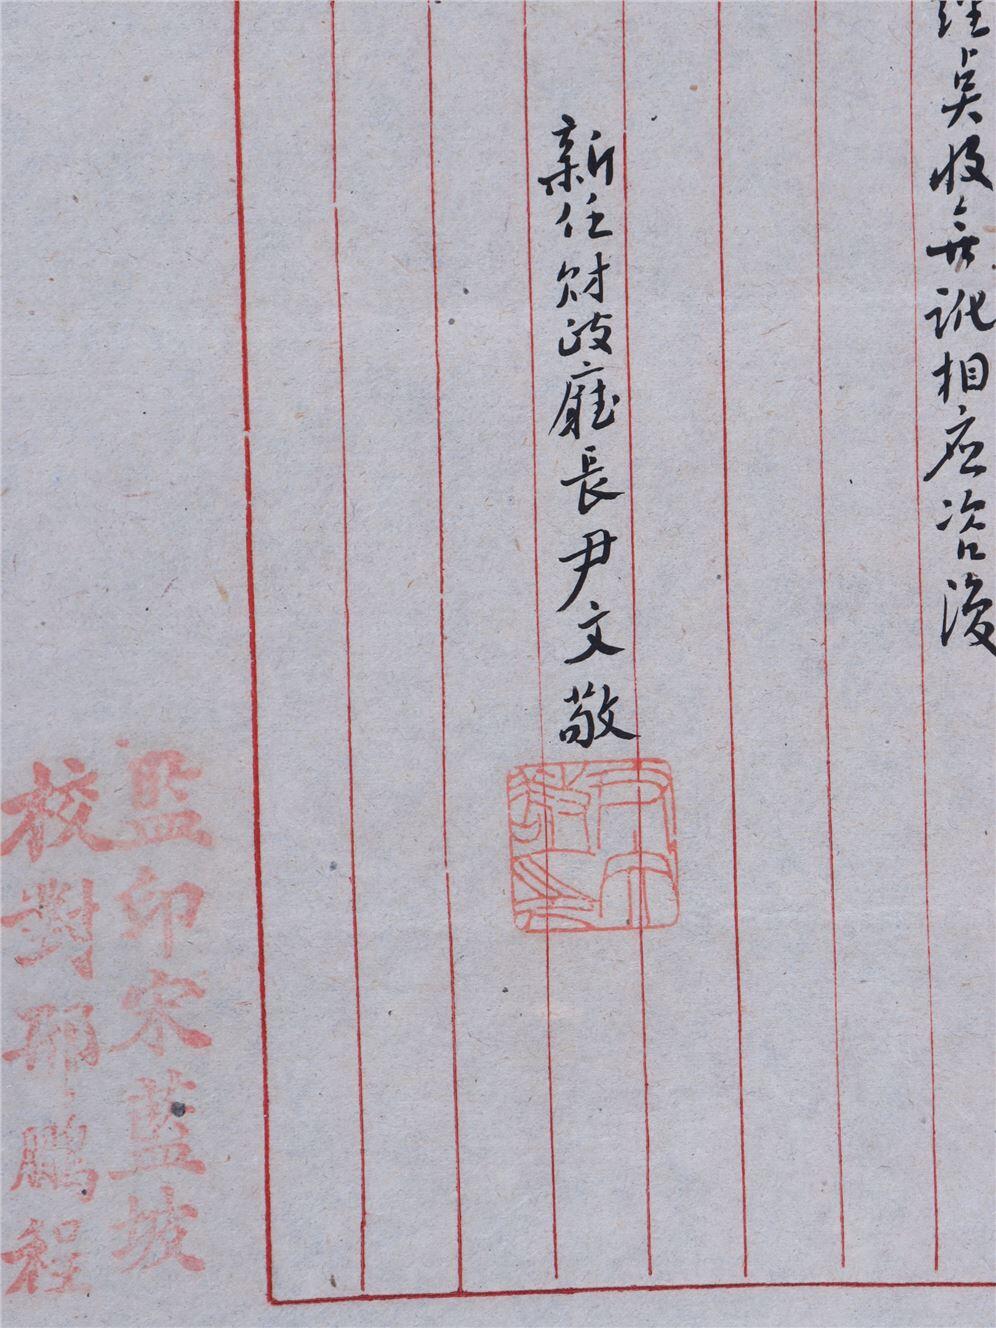 收無訛相应咨復
新任財政廳長尹文敬
監印宋藍坡
校對邵鵬程